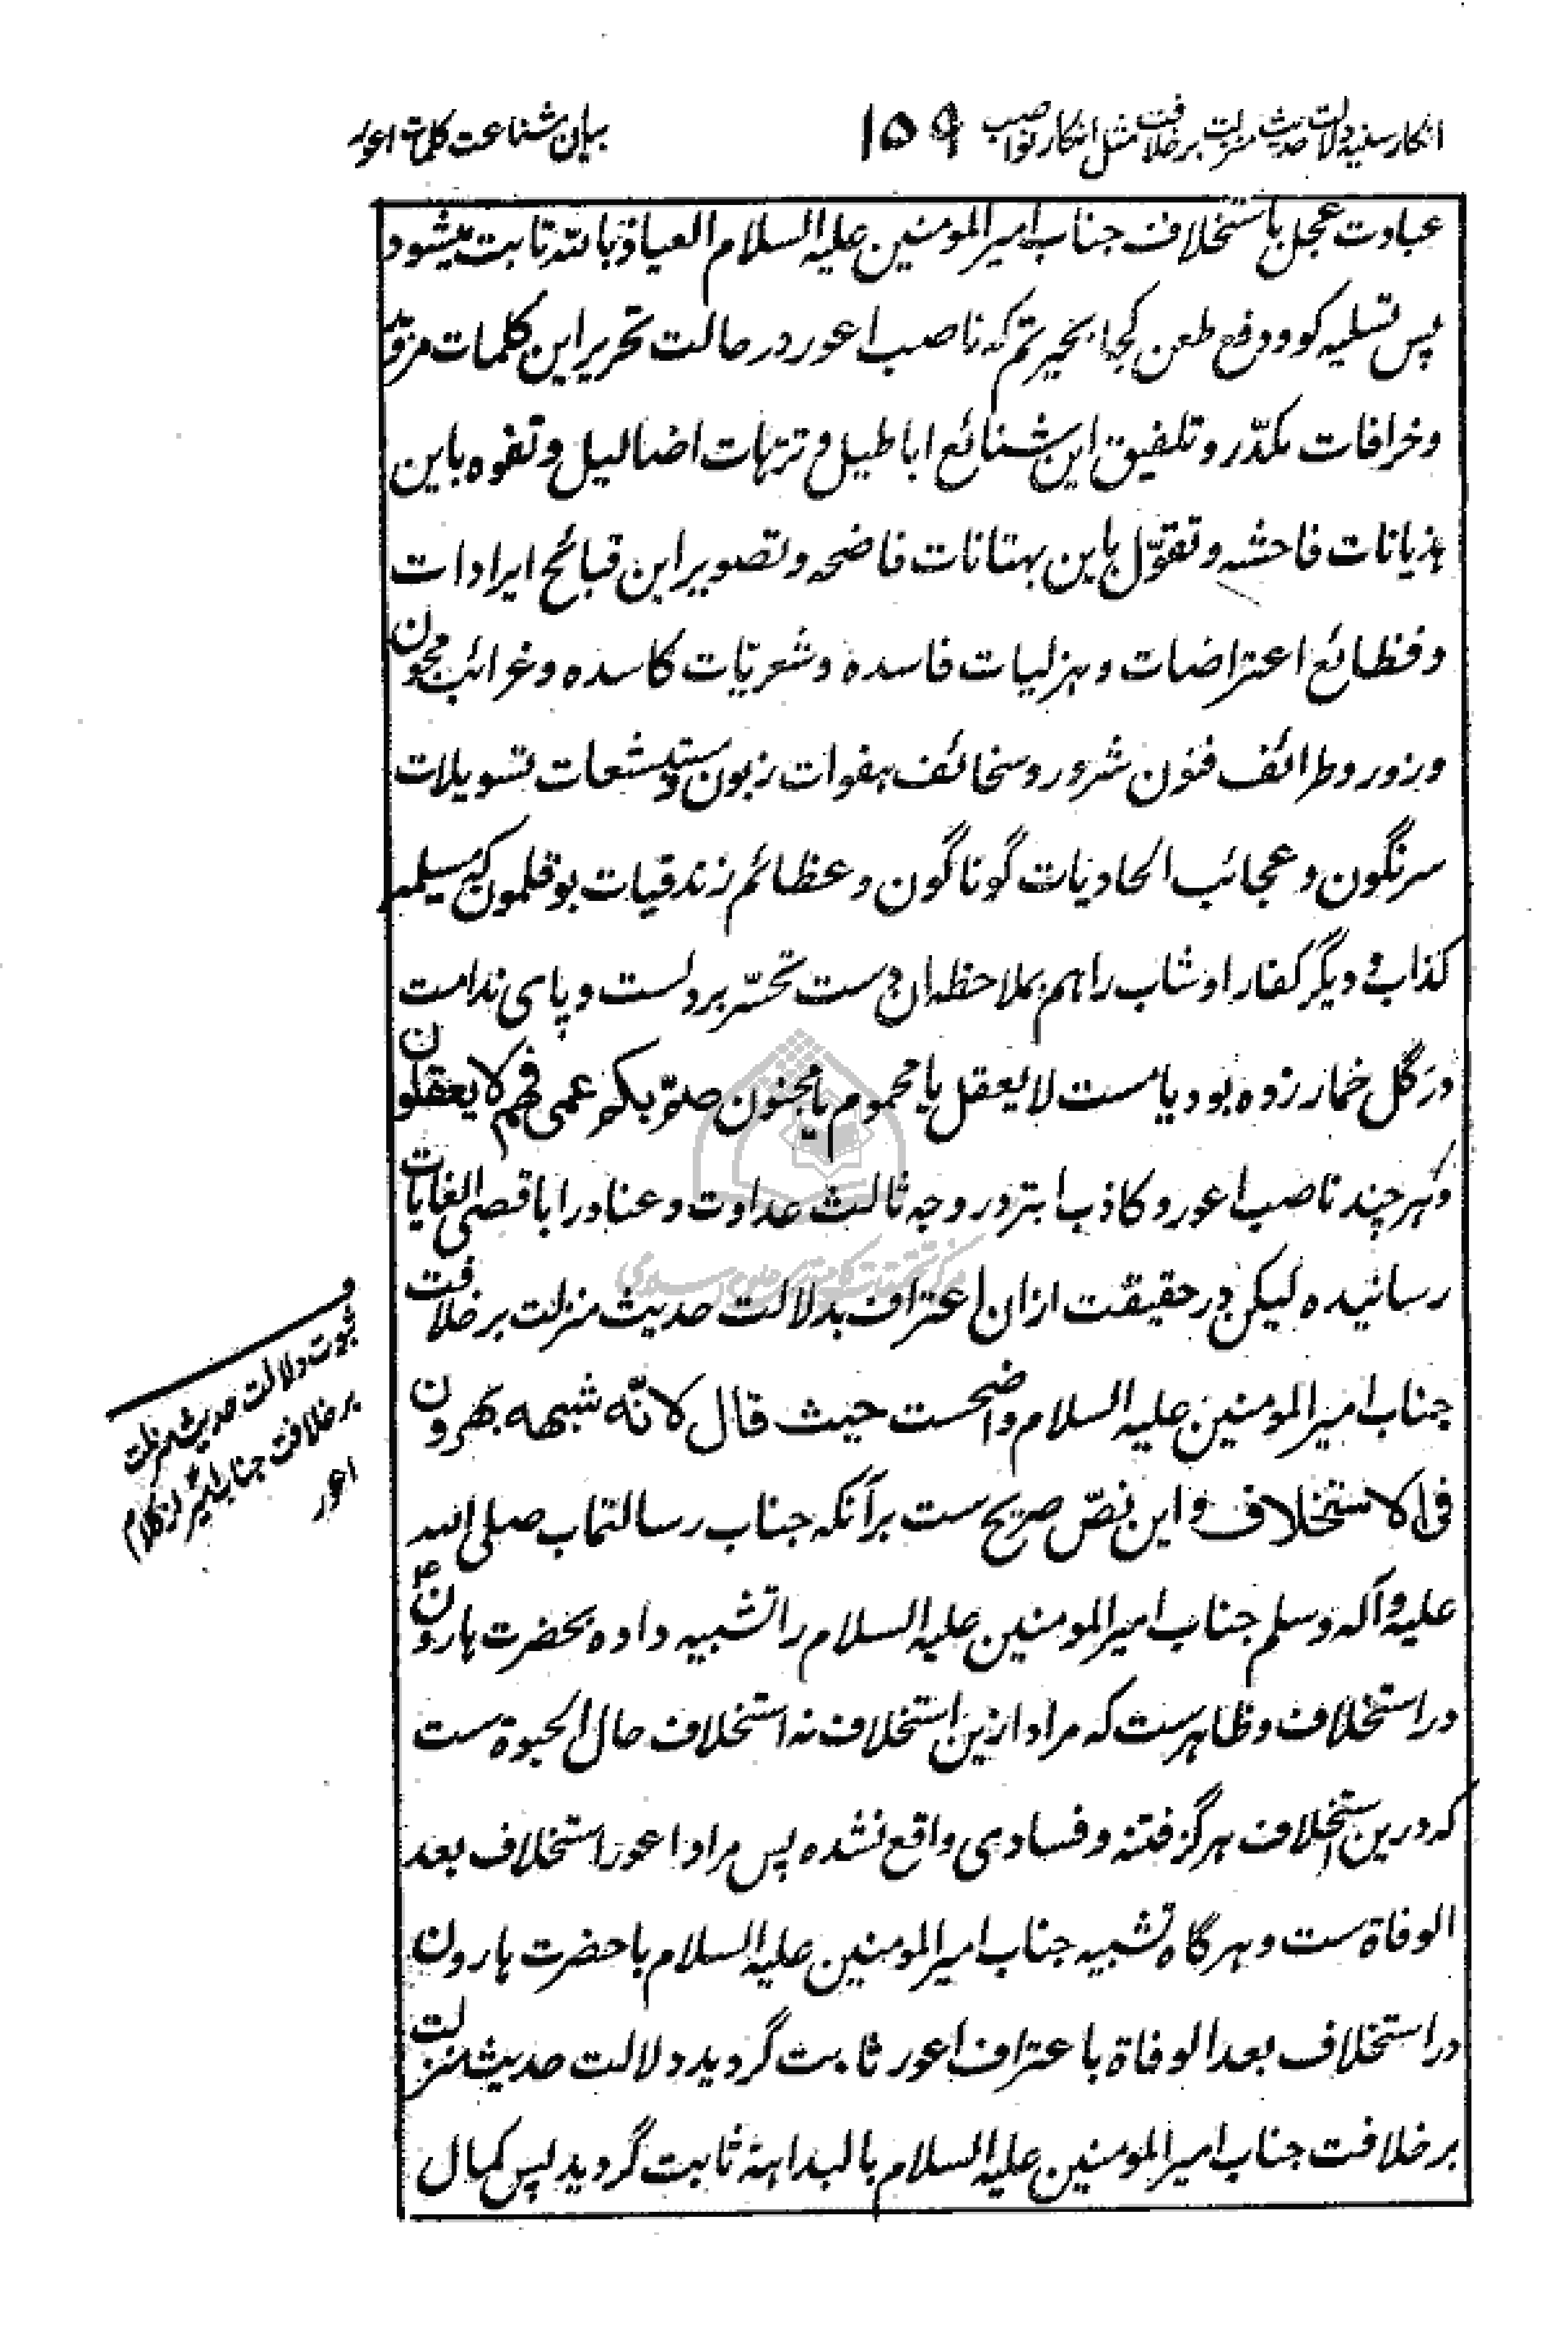 انکار سنیه دلالت حدیث منزلت برخلافت مثل انکار نواصب ۱۵۹ بیان شناعت کلمات اعور
عبادت عجل باستخلاف جناب امیرالمومنین علیه السلام العیاذ بالله ثابت میشود
پس تسلیه کو و دفع طعن کجا بخیرتم که ناصب اعور در حالت تحریر این کلمات
و خرافات مکدّر و تلفیق این شنائع اباطیل و ترّهات اضالیل و تفوه باین
هذیانات فاحشه و تقوّل باین بهتانات فاضحه و تصویر این قبائح ایرادات
و فظائع اعتراضات و هزلیات فاسده و شعریّات کاسده و غرائب مجون
و زور و طرائف فنون شرور و سخائف هفوات زبون و مستبشعات تسویلات
سرنگون و عجائب الحادیات گوناگون و عظائم زندقیات بوقلمون که مسیلمه
کذاب و دیگر کفار اوشاب را هم بملاحظه ان دست تحسّر بر دلست و پای ندامت
در گل خمار زده بود یا مست لا یعقل یا محموم یا مجنون صمّ بکم عمی فهم لا یعقلون
و هر چند ناصب اعور و کاذب ابتر در وجه ثالث عداوت و عناد را باقصی الغایات
رسانیده لیکن در حقیقت ازان اعتراف بدلالت حدیث منزلت بر خلافت
جناب امیرالمومنین علیه السلام واضحست حیث قال لانّه شبهه بهرون
فی الاستخلاف و این نصّ صریح ست برآنکه جناب رسالتماب صلی الله
علیه و آله و سلم جناب امیرالمومنین علیه السلام را تشبیه داده بحضرت هارونؑ
در استخلاف و ظاهرست که مراد ازین استخلاف نه استخلاف حال الحیوة ست
که درین استخلاف هرگز فتنه و فسادی واقع نشده پس مراد اعور استخلاف بعد
الوفاة ست و هر گاه تشبیه جناب امیرالمومنین علیه السلام با حضرت هارون
در استخلاف بعد الوفاة باعتراف اعور ثابت گردید دلالت حدیث منزلت
بر خلافت جناب امیرالمومنین علیه السلام بالبداهة ثابت گردید پس کمال
ف
ثبوت دلالت حدیث منزلت
برخلافت جناب امیرؑ از کلام
اعور